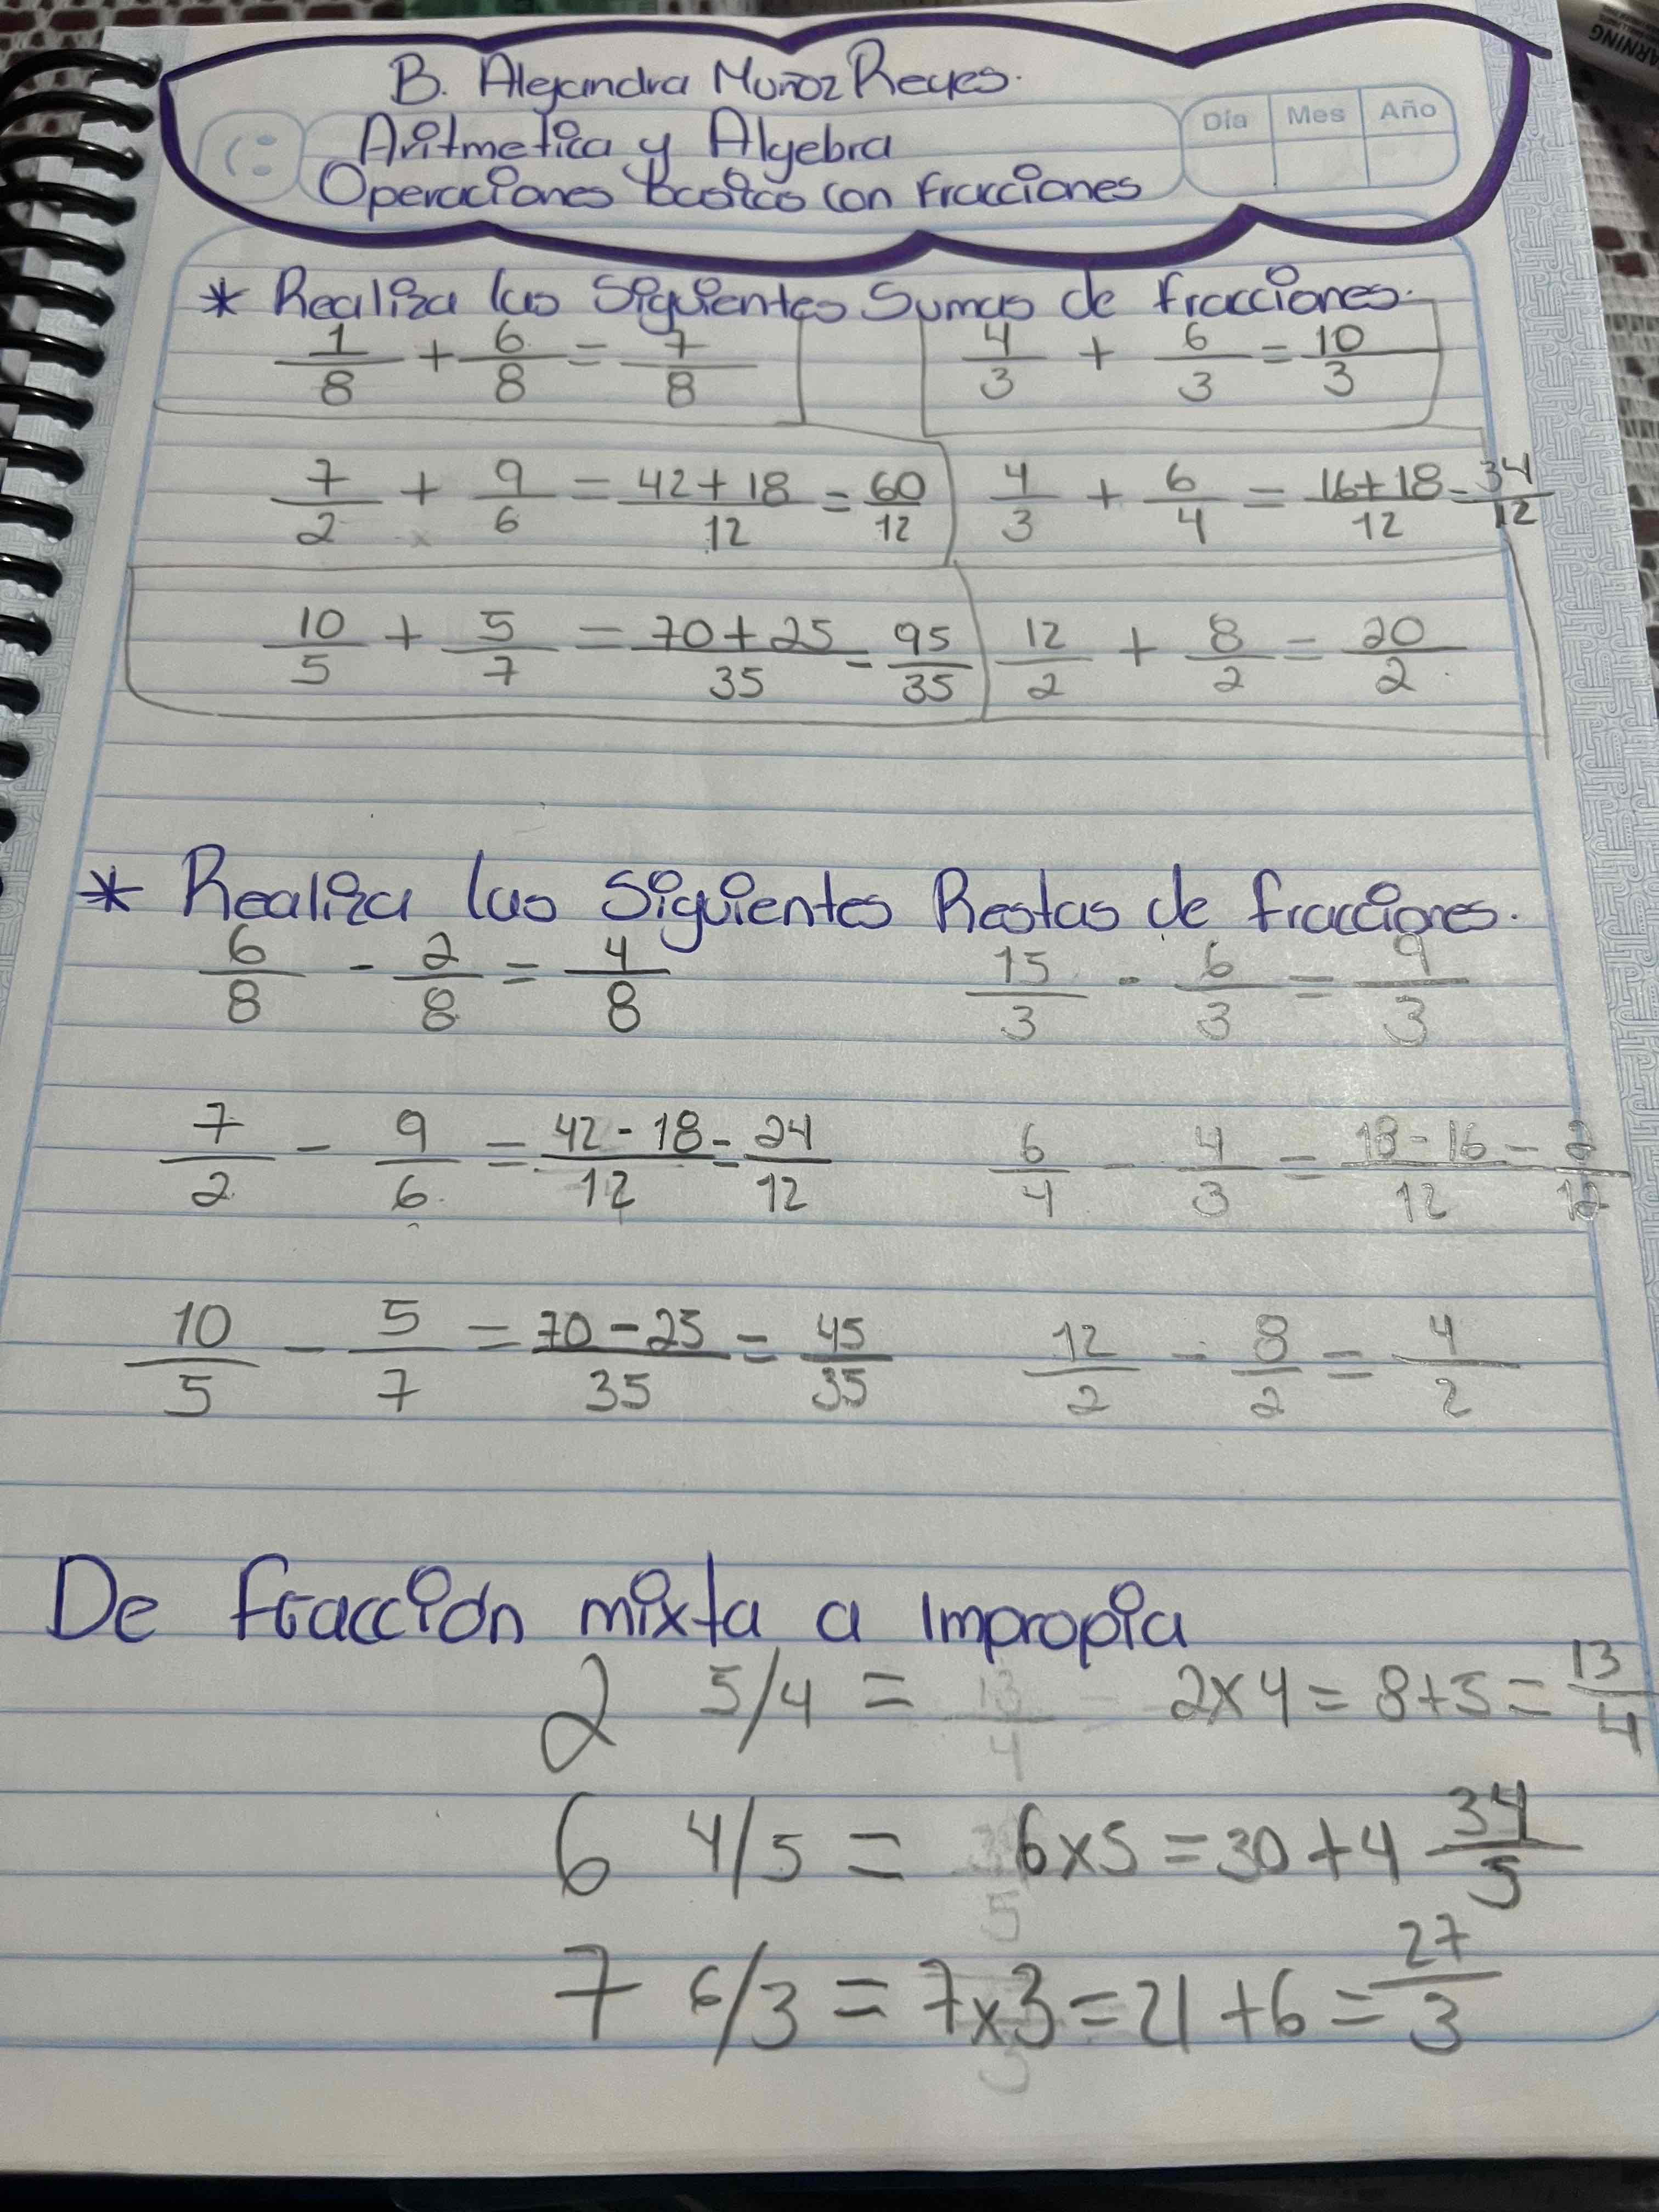 WARNING
B. Alejandra Muñoz Reyes.
Aritmetica y Algebra
Operaciones Basicas con fracciones
Dia Mes Año
* Realiza las Siguientes Sumas de fracciones.
1/8 + 6/8 = 7/8 4/3 + 6/3 = 10/3
7/2 + 9/6 = 42+18/12 = 60/12 4/3 + 6/4 = 16+18/12 = 34/12
10/5 + 5/7 = 70+25/35 = 95/35 12/2 + 8/2 = 20/2
* Realiza las Siguientes Restas de fracciones.
6/8 - 2/8 = 4/8 15/3 - 6/3 = 9/3
7/2 - 9/6 = 42-18/12 = 24/12 6/4 - 4/3 = 18-16/12 = 2/12
10/5 - 5/7 = 70-25/35 = 45/35 12/2 - 8/2 = 4/2
De fracción mixta a Impropia
2 5/4 = 2x4 = 8+5 = 13/4
6 4/5 = 6x5 = 30+4 34/5
7 6/3 = 7x3 = 21+6 = 27/3